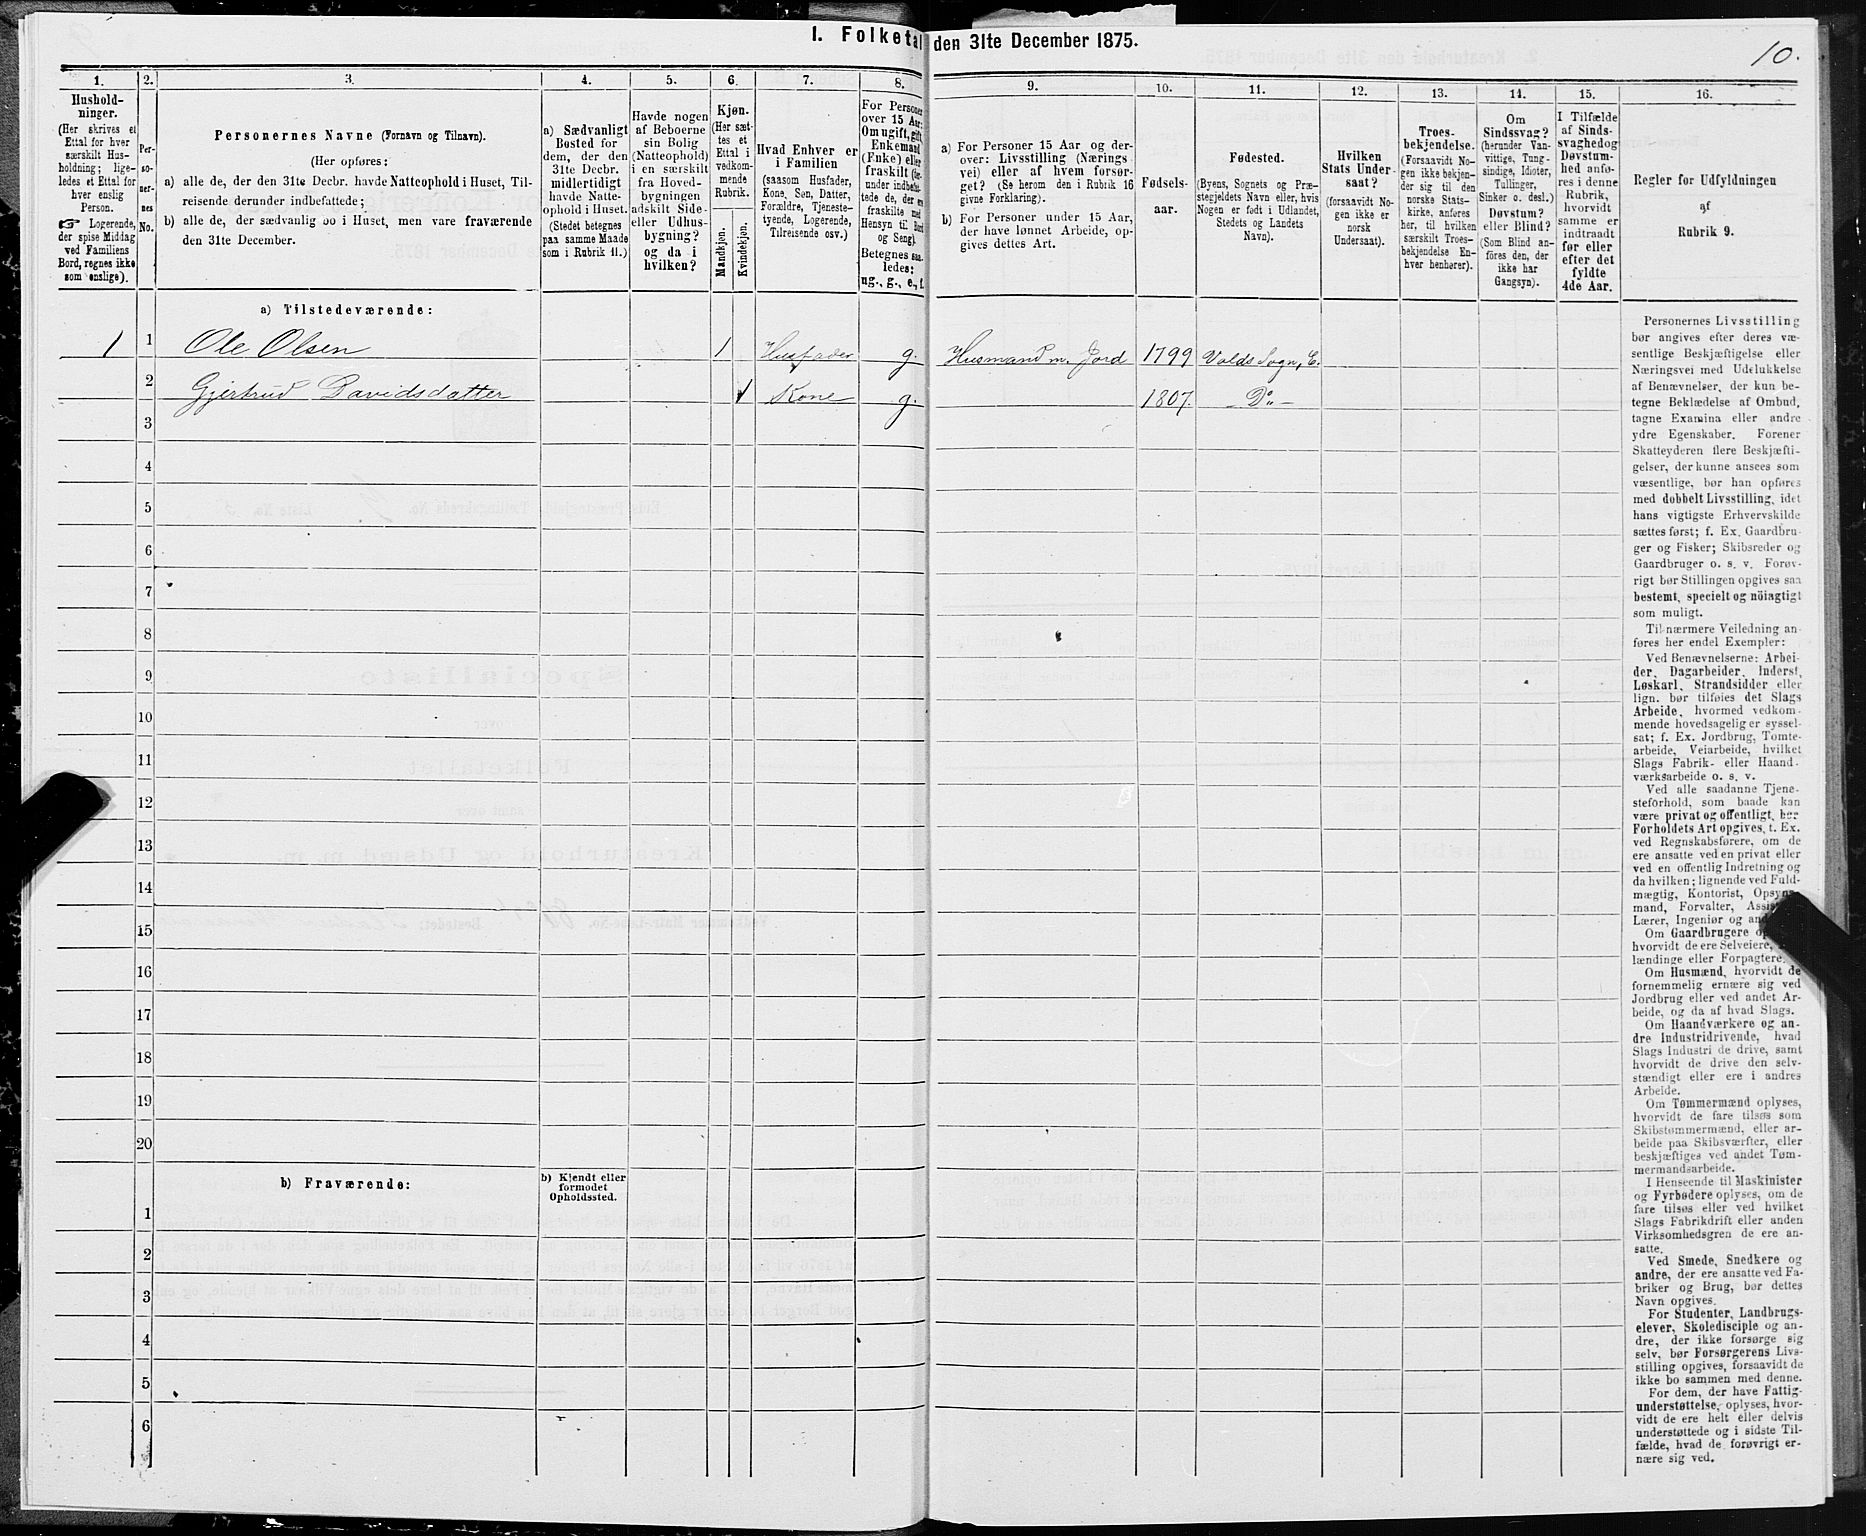 I. Folketal den 31te December 1875.
10.
1. 2. 3. 4. 5. 6. 7. 8.
Hushold-
ninger.
(Her skrives et
Ettal for hver
særskilt Hus-
holdning; lige-
ledes et Ettal for
hver enslig
Person.
☞ Logerende,
der spise Middag
ved Familiens
Bord, regnes ikke
som enslige).
Per-
so-
ner-
nes
No.
Personernes Navne (Fornavn og Tilnavn).
(Her opføres:
a) alle de, der den 31te Decbr. havde Natteophold i Huset, Til-
reisende derunder indbefattede;
b) alle de, der sædvanlig bo i Huset, men vare fraværende
den 31te December.
a) Sædvanligt
Bosted for
dem, der den
31te Decbr.
midlertidigt
havde Natte-
ophold i Huset.
(Stedet betegnes
paa samme Maade
som i Rubrik 11.)
Havde nogen
af Beboerne
sin Bolig
(Natteophold)
i en særskilt
fra Hoved-
bygningen
adskilt Side-
eller Udhus-
bygning?
og da i
hvilken?
Kjøn.
(Her sæt-
tes et
Ettal i
vedkom-
mende
Rubrik.
Mandkjøn.
Kvindekjøn.
Hvad Enhver er
i Familien
(saasom Husfader,
Kone, Søn, Datter,
Forældre, Tjeneste-
tyende, Logerende,
Tilreisende osv.)
For Personer
over 15 Aar:
Om ugift, gift,
Enkemand
(Enke) eller
fraskilt (her-
under indbefat-
tede de, der ere
fraskilte med
Hensyn til Bord
og Seng).
Betegnes saa-
ledes:
ug., g., e., f.
9. 10. 11. 12. 13. 14. 15. 16.
a) For Personer 15 Aar og der-
over: Livsstilling (Nærings
vei) eller af hvem forsør-
get? (Se herom den i Rubrik 16
givne Forklaring).
b) For Personer under 15 Aar,
der have lønnet Arbeide, op-
gives dettes Art.
Fødsels-
aar.
Fødested.
(Byens, Sognets og Præ-
stegjeldets Navn eller, hvis
Nogen er født i Udlandet,
Stedets og Landets
Navn).
Hvilken
Stats Under-
saat?
(forsaavidt No-
gen ikke er
norsk
Undersaat).
Troes-
bekjendelse.
(Forsaavidt No-
gen ikke bekjen-
der sig til den
norske Stats-
kirke, anføres
her, til hvilken
særskilt Troes-
bekjendelse En-
hver henhører).
Om
Sindssvag?
(herunder Van-
vittige, Tung-
sindige, Idioter,
Tullinger,
Sinker o. desl.)
Døvstum?
eller Blind?
(Som Blind an-
føres den, der
ikke har
Gangsyn).
I Tilfælde
af Sinds-
svaghed og
Døvstum-
hed anfø-
res i denne
Rubrik,
hvorvidt
samme er
indtraadt
før eller
efter det
fyldte
4de Aar.
Regler for Udfyldningen
af
Rubrik 9.
a) Tilstedeværende:
1 1 Ole Olsen 1 Husfader g. Husmand m. Jord 1799 Volds Sogn, E.
2 Gjertrud Davidsdatter 1 Kone g. 1807. - Do -
3
4
5
6
7
8
9
10
11
12
13
14
15
16
17
18
19
20
b) Fraværende:
b) Kjendt eller
formodet
Opholdssted.
1
2
3
4
5
6
Personernes Livsstilling
bør angives efter deres væ-
sentlige Beskjæftigelse eller
Næringsvei med Udelukkelse
af Benævnelser, der kun be-
tegne Beklædelse af Ombud,
tagne Examina eller andre
ydre Egenskaber. Forener
Skatteyderen flere Beskjæfti-
gelser, der kunne ansees som
væsentlige, bør han opføres
med dobbelt Livsstilling, idet
hans vigtigste Erhvervskilde
sættes først; f. Ex. Gaardbru-
ger og Fisker; Skibsreder og
Gaardbruger o. s. v. Forøv-
rigt bør Stillingen opgives saa
bestemt, specielt og nöiagtigt
som muligt.
Til nærmere Veiledning an-
føres her endel Exempler:
Ved Benævnelserne: Arbei-
der, Dagarbeider, Inderst,
Løskarl, Strandsidder eller
lign. bør tilføies det Slags
Arbeide, hvormed vedkom-
mende hovedsagelig er syssel-
sat; f. Ex. Jordbrug, Tomte-
arbeide, Veiarbeide, hvilket
Slags Fabrik- eller Haand-
værksarbeide o. s. v.
Ved alle saadanne Tjene-
steforhold, som baade kan
være privat og offentligt, bør
Forholdets Art opgives, t. Ex.
ved Regnskabsførere, om de
ere ansatte ved en privat eller
ved en offentlig Indretning og
da hvilken; lignende ved Fuld-
mægtig, Kontorist, Opsyns-
mand, Forvalter,
Lærer, Ingeniør og
Om Gaardbrugere
hvorvidt de ere Selveiere,
lændinge eller Forpagtere.
Om Husmænd, hvorvidt de
fornemmelig ernære sig ved
Jordbrug eller ved andet Ar-
beide, og da af hvad Slags.
Om Haandværkere og an-
dre Industridrivende, hvad
Slags Industri de drive, samt
hvorvidt de drive den selv-
stændigt eller ere i andres
Arbeide.
Om Tømmermænd oplyses,
hvorvidt de fare tilsøs som
Skibstømmermænd, eller ar-
beide paa Skibsværfter, eller
beskjæftiges ved andet Tøm-
mermandsarbeide.
I Henseende til Maskinister
og Fyrbødere oplyses, om de
fare tilsøs eller ved hvilket
Slags Fabrikdrift eller anden
Virksomhedsgren de ere an-
satte.
Ved Smede, Snedkere og
andre, der ere ansatte ved Fa-
briker og Brug, bør dettes
Navn opgives.
For Studenter, Landbrugs-
elever, Skoledisciple og an-
dre, der ikke forsørge sig
selv, bør Forsørgerens Livs-
stilling opgives, forsaavidt de
ikke bo sammen med denne.
For dem, der have Fattig-
understøttelse, oplyses, hvor-
vidt de ere helt eller delvis
understøttede og i sidste Til-
fælde, hvad de forøvrigt er-
nære sig ved.